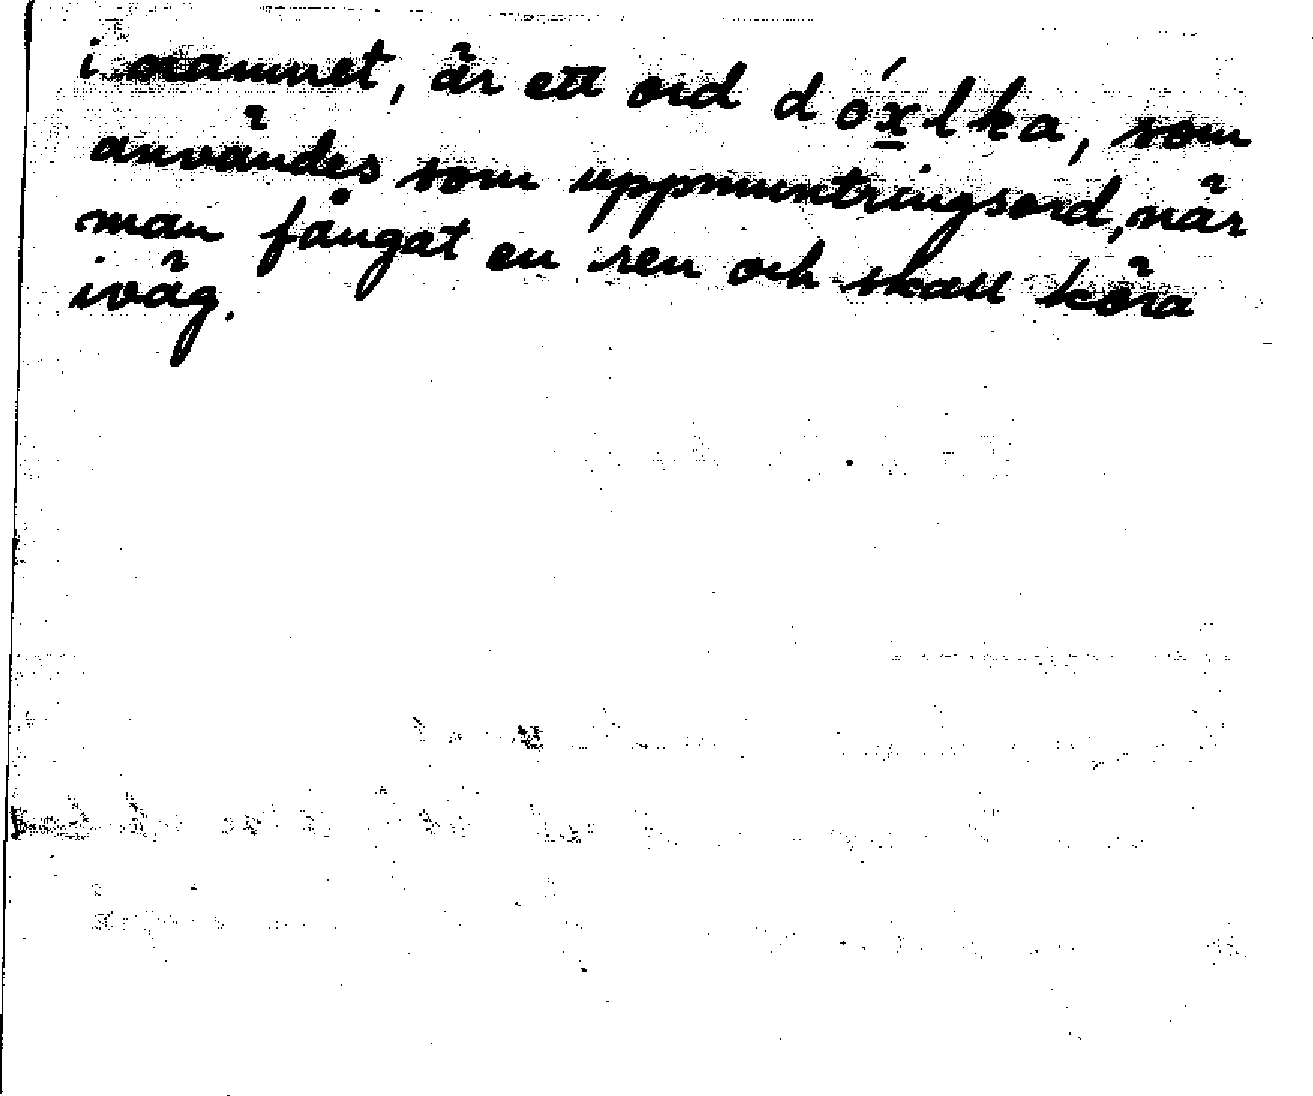 i namnet, är ett ord dóx̲lka, som
användes som uppmuntringsord, när
man fångat en ren och skall köra
iväg.